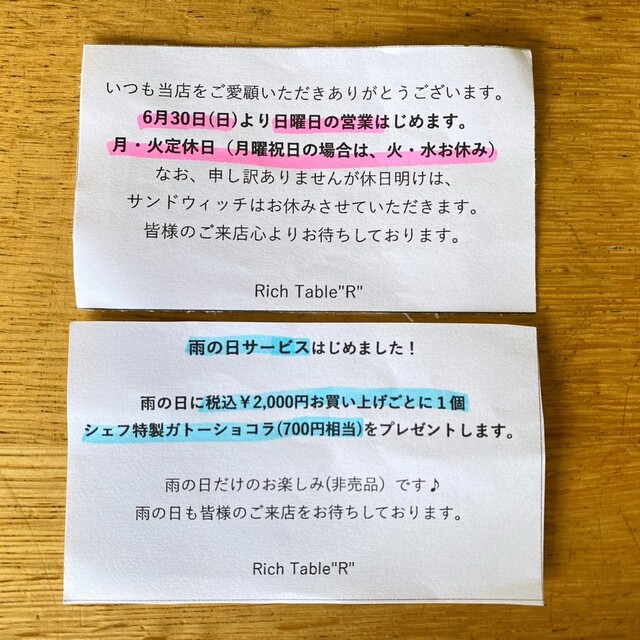 いつも当店をご愛顧いただきありがとうございます。
6月30日(日)より日曜日の営業はじめます。
月・火定休日（月曜祝日の場合は、火・水お休み）
なお、申し訳ありませんが休日明けは、
サンドウィッチはお休みさせていただきます。
皆様のご来店心よりお待ちしております。
Rich Table"R"
雨の日サービスはじめました！
雨の日に税込￥2,000円お買い上げごとに１個
シェフ特製ガトーショコラ(700円相当)をプレゼントします。
雨の日だけのお楽しみ(非売品）です♪
雨の日も皆様のご来店をお待ちしております。
Rich Table"R"